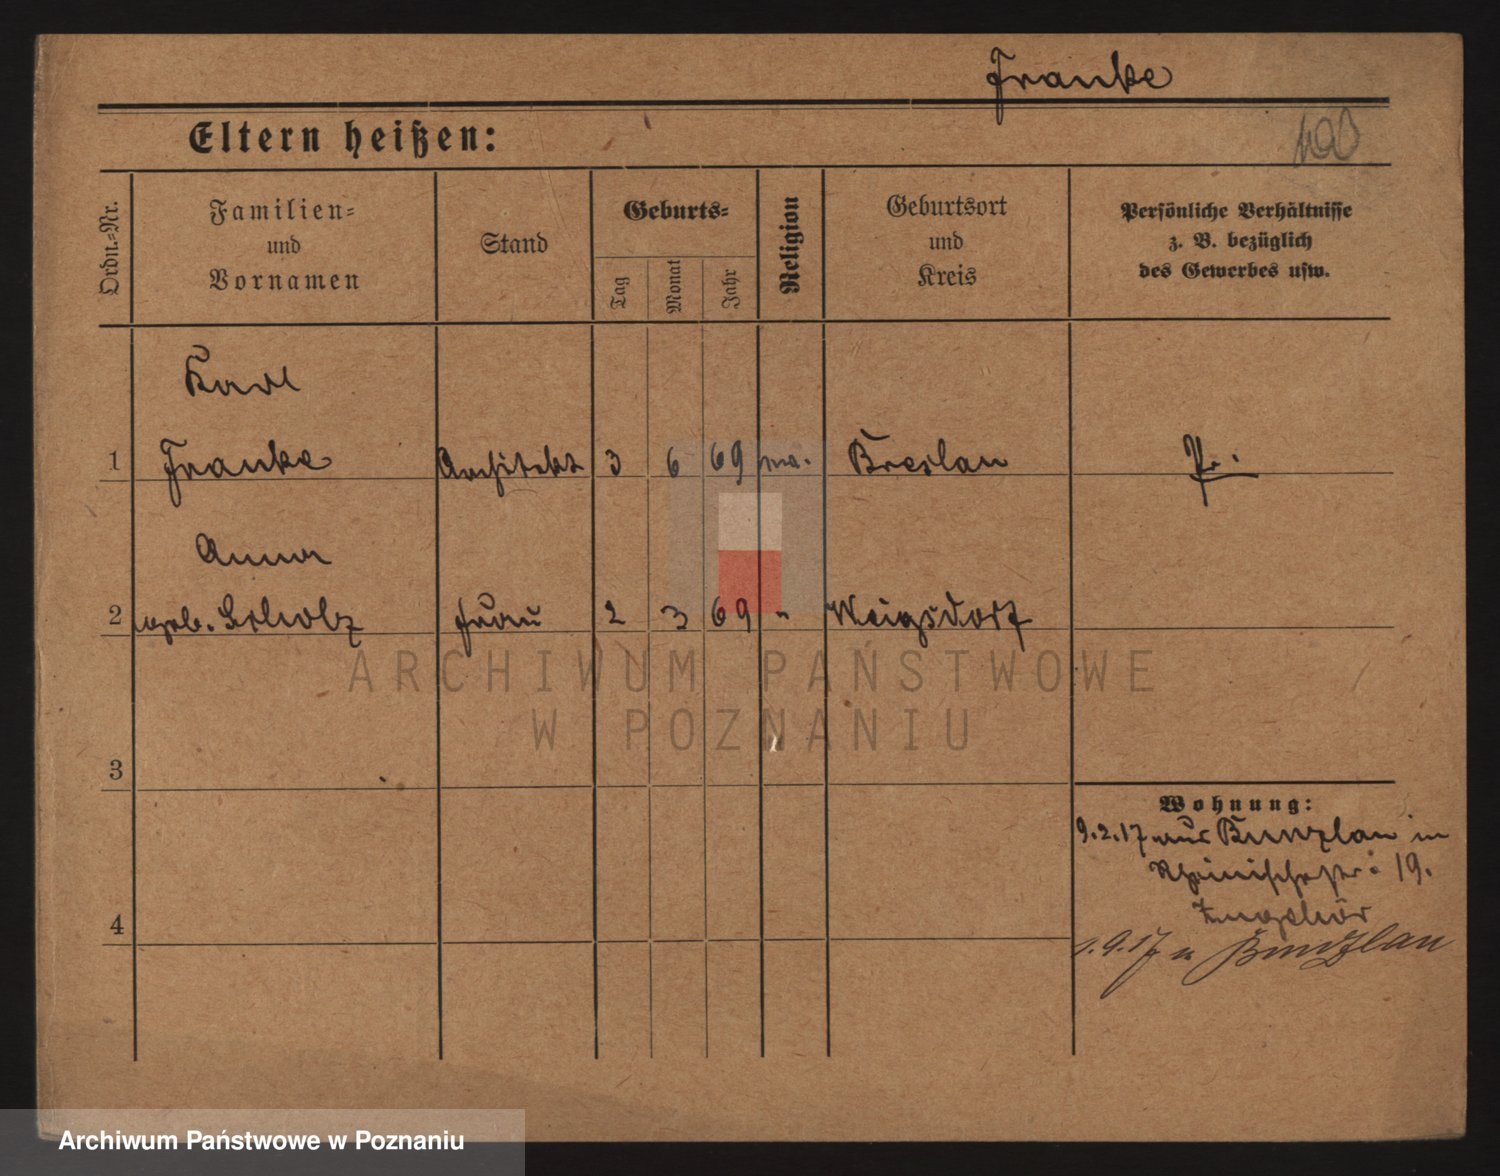 Franke
Eltern heißen:
Ordn.-Nr.
Familien-
und
Vornamen
Stand
Geburts-
Tag
Monat
Jahr
Religion
Geburtsort
und
Kreis
Persönliche Verhältnisse
z. B. bezüglich
des Gewerbes usw.
Karl
1 Franke Architekt 3 6 69 Breslau Pr.
Anna
2 geb. Scholz Frau 2 3 69 " Weigsdorf
ARCHIWUM PAŃSTWOWE
W POZNANIU
3
Wohnung:
9.2.17 aus Bunzlau in
Rheinischestr: 19.
4
1.9.17 n Bunzlau
Archiwum Państwowe w Poznaniu